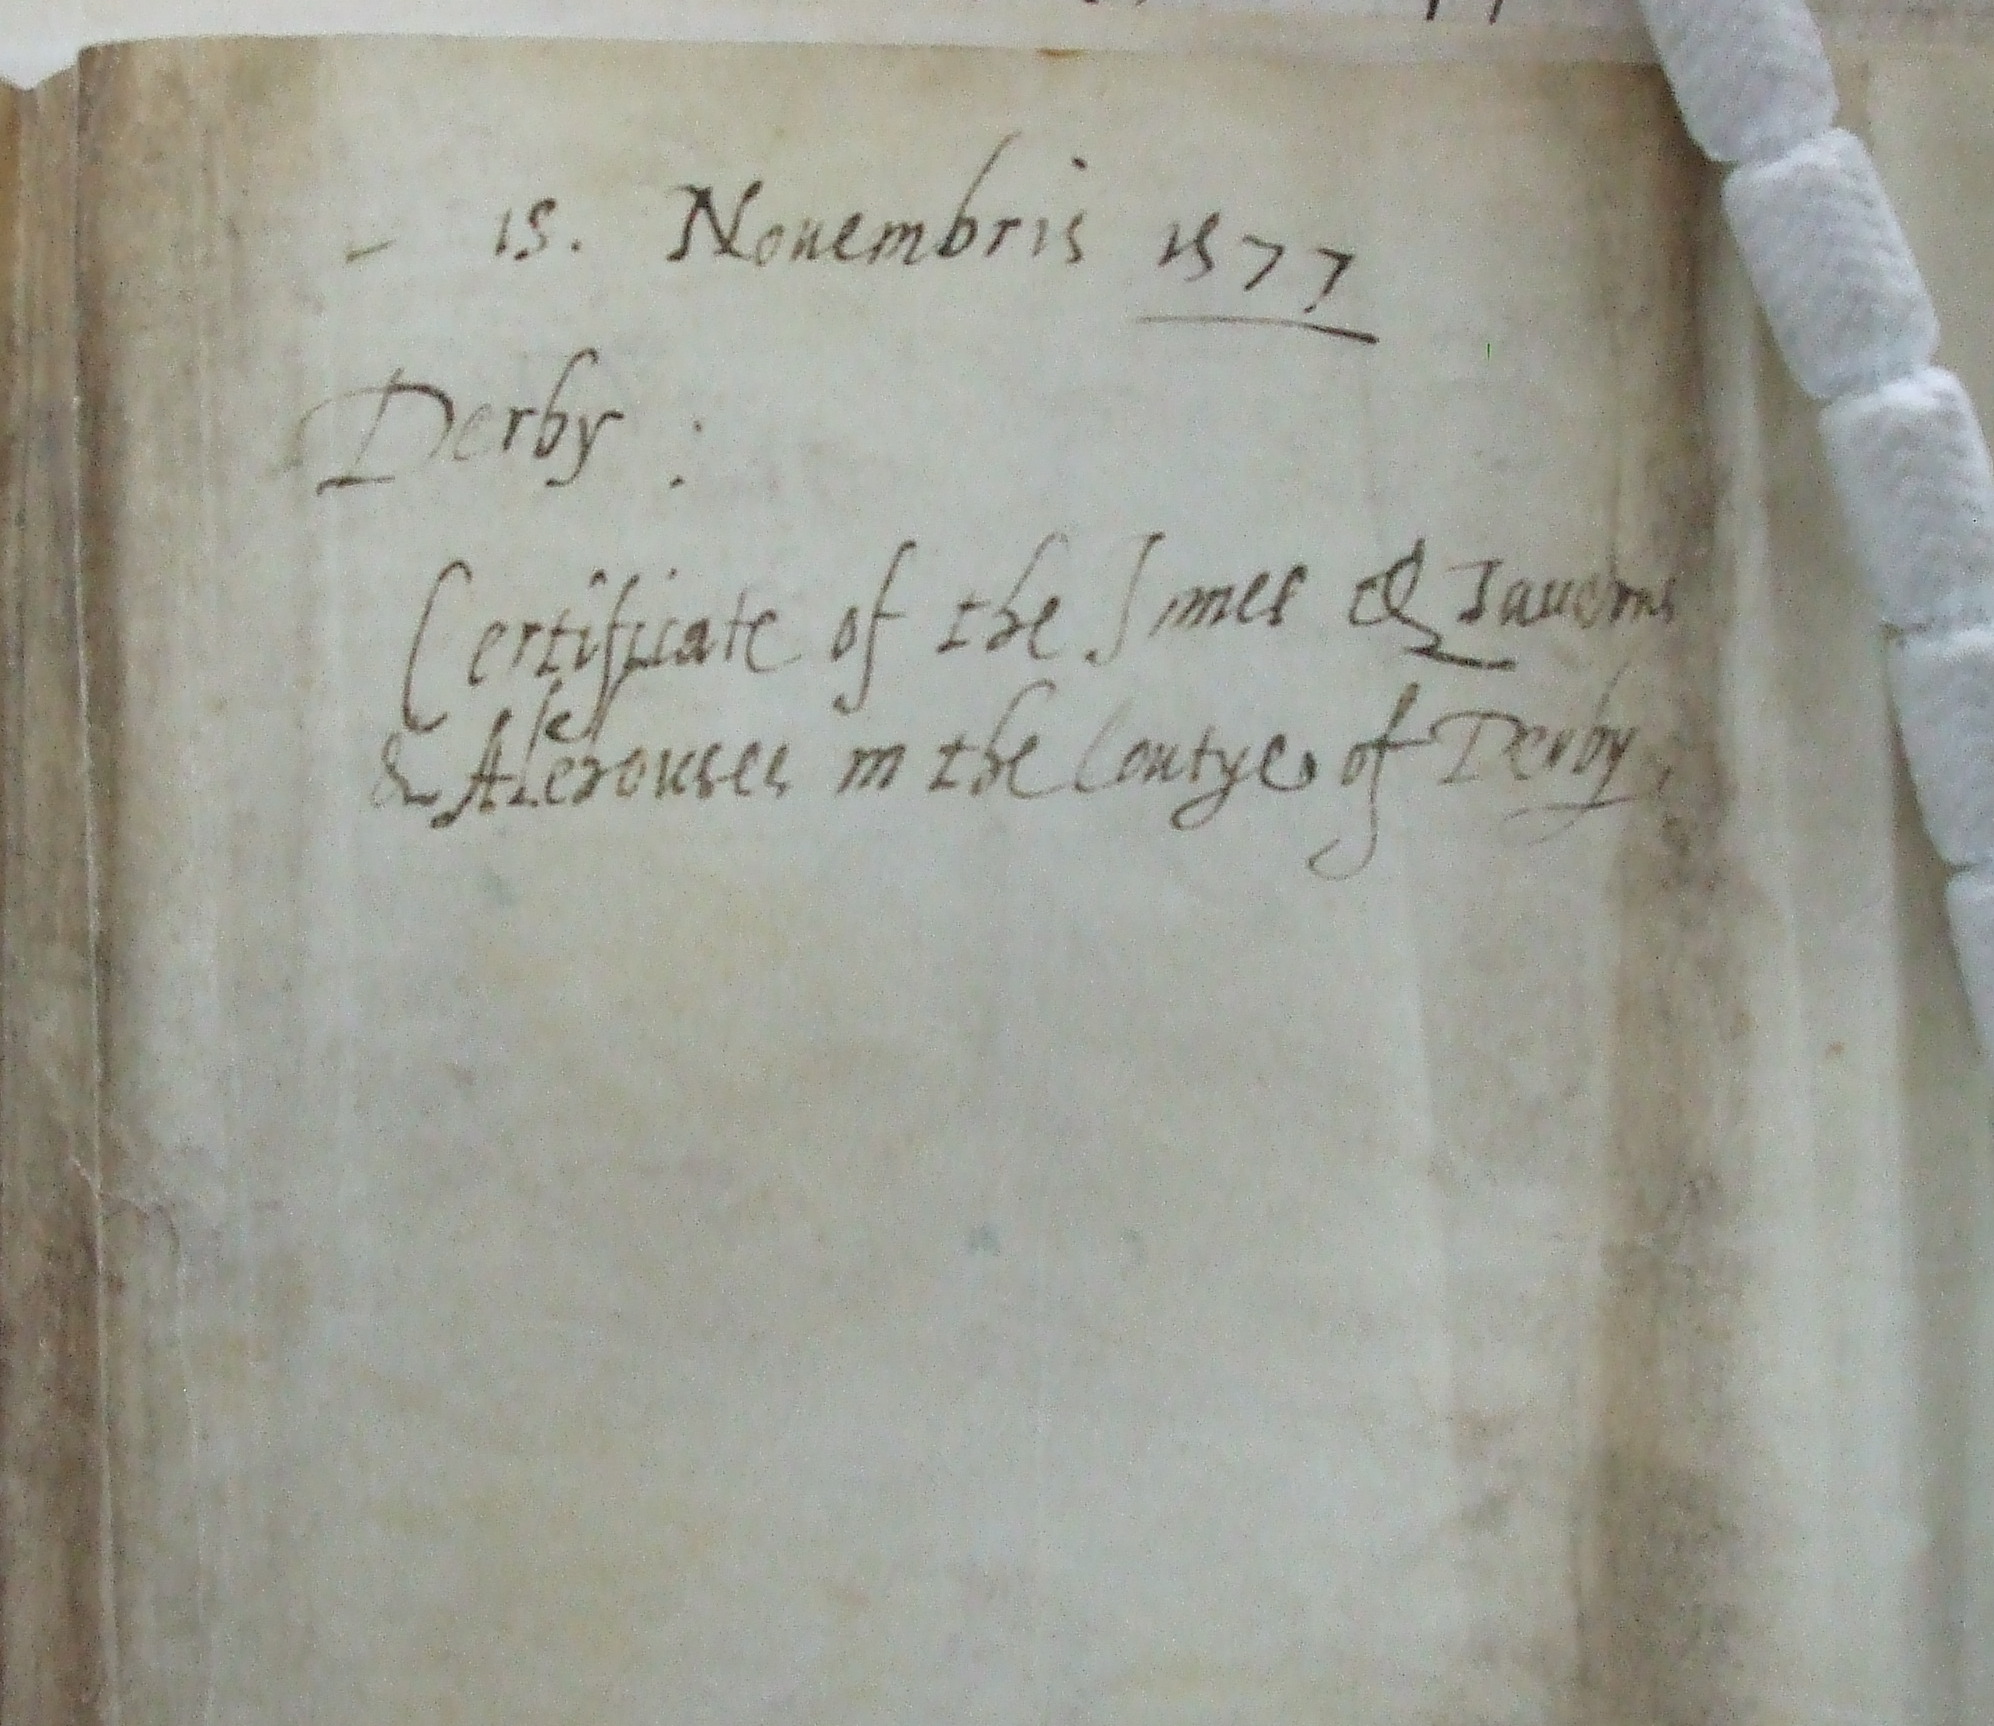 15. Nouembris 1577
Derby :
Certificate of the Innes & Tauerns
& Alehouses in the Contye of Derby.